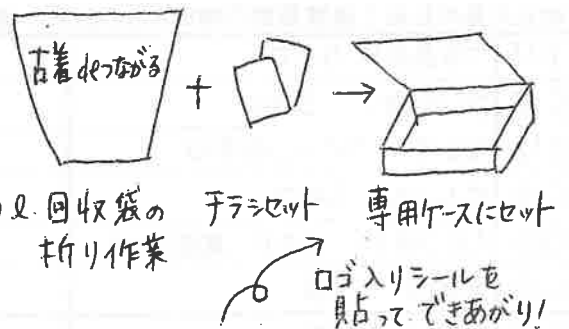 古着deつながる
+
→
回収袋の
折り作業
チラシセット
専用ケースにセット
ロゴ入りシールを
貼って、できあがり!